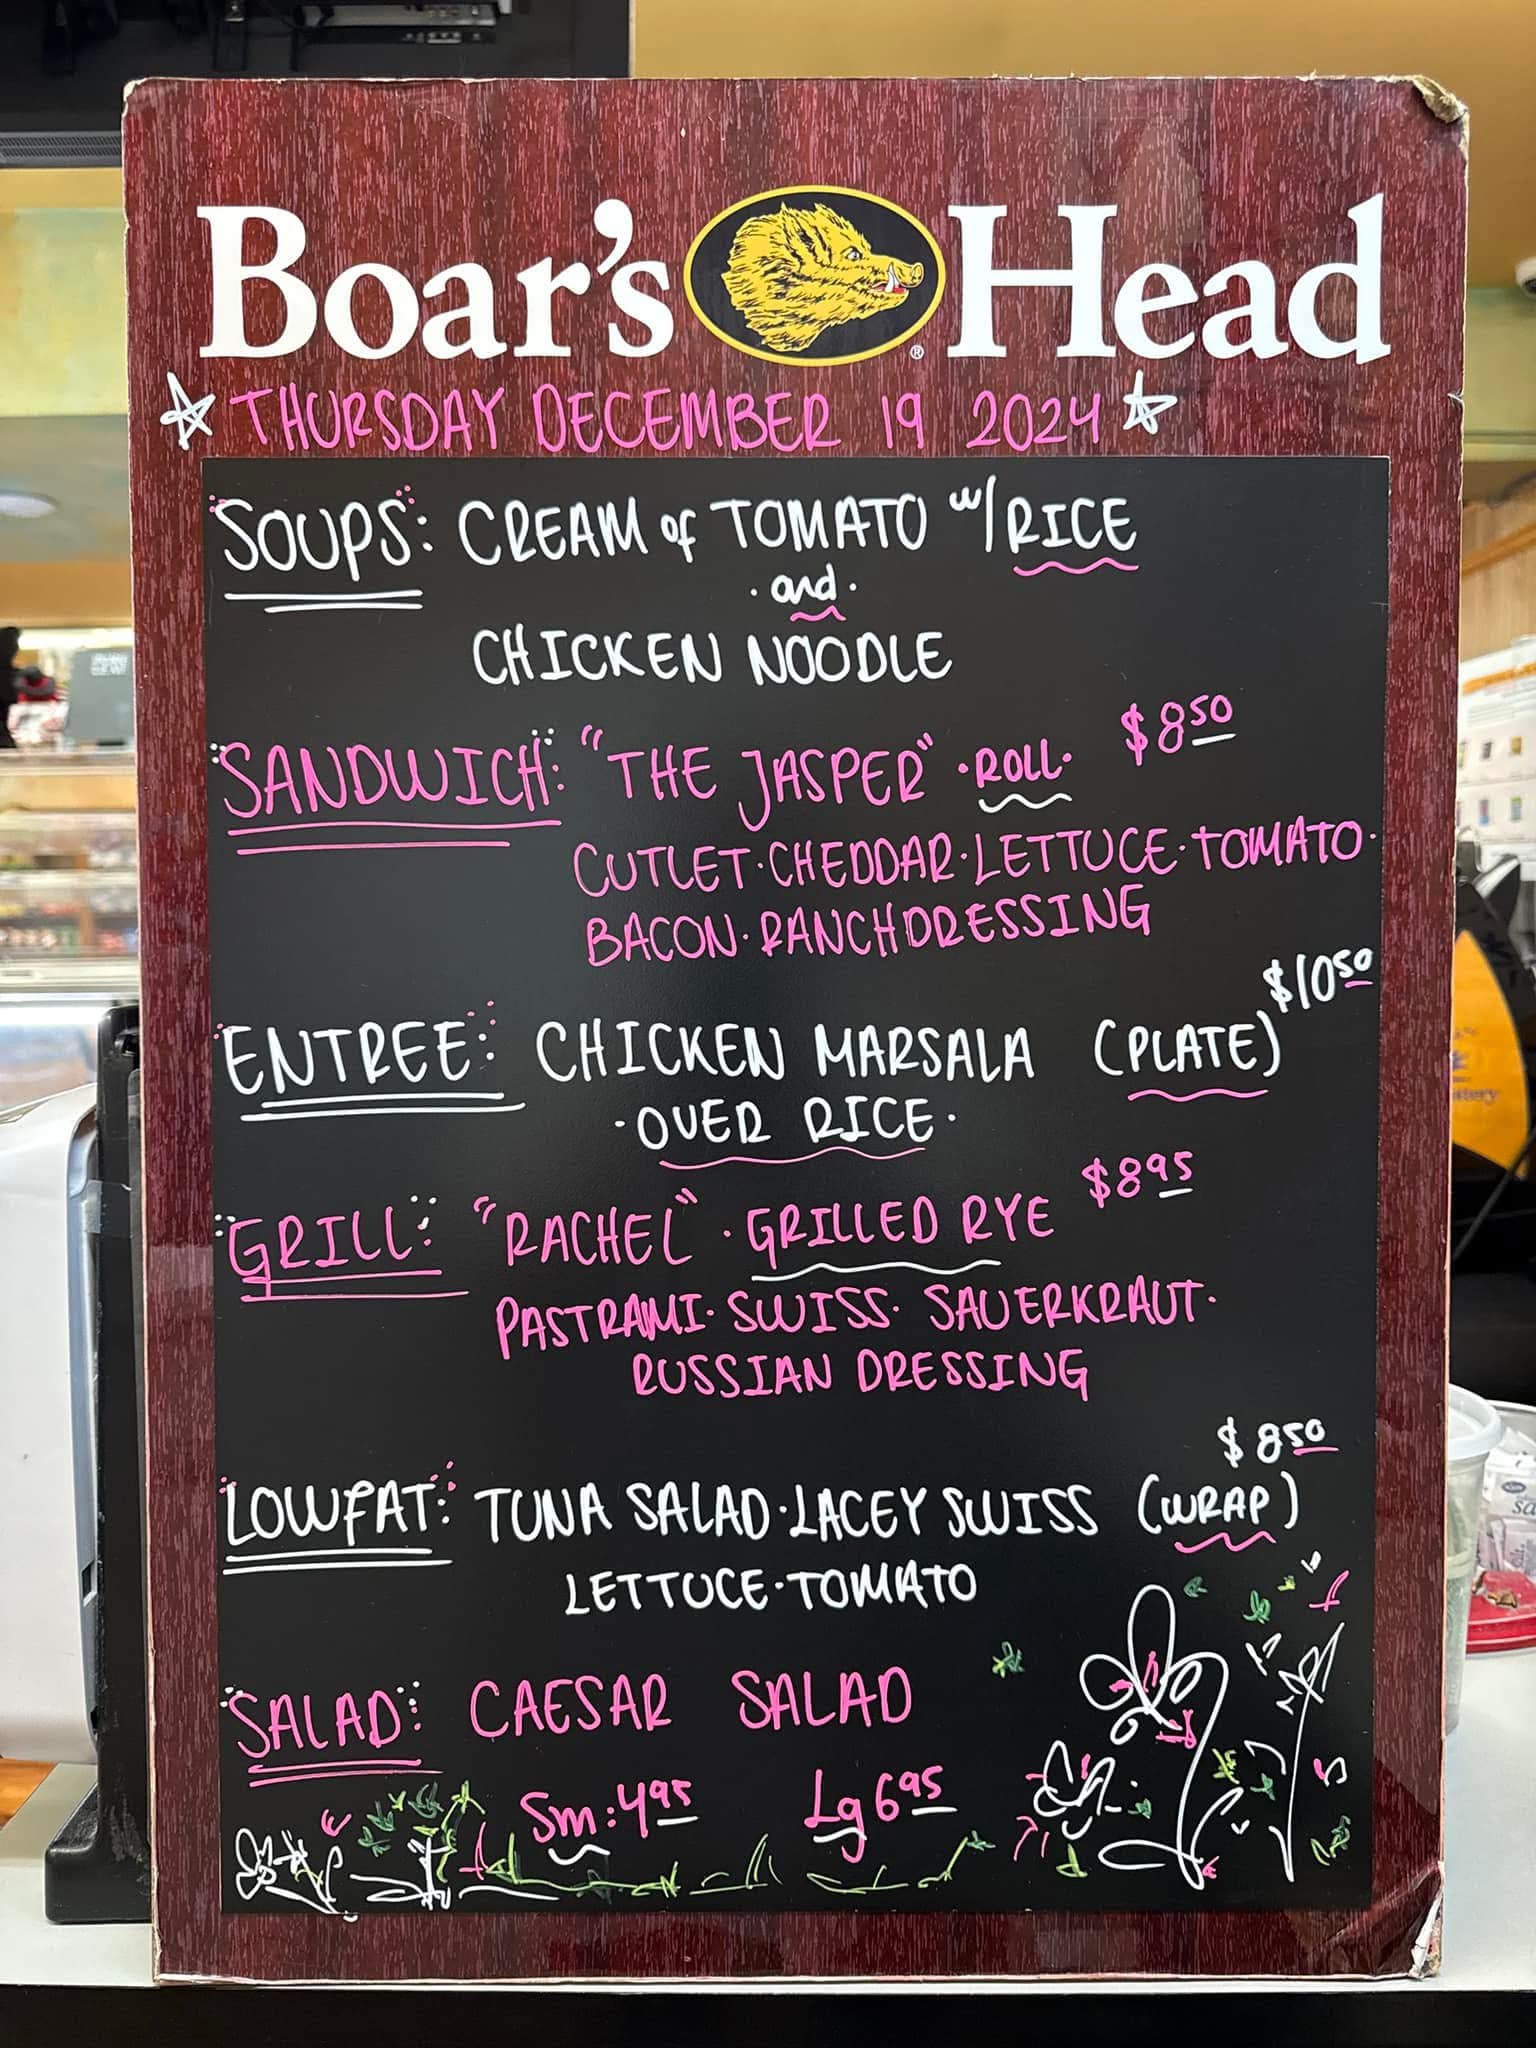 Boar's Head
®
THURSDAY DECEMBER 19 2024
SOUPS: CREAM of TOMATO w/RICE
· and ·
CHICKEN NOODLE
SANDWICH: "THE JASPER" · ROLL · $8 50
CUTLET · CHEDDAR · LETTUCE · TOMATO ·
BACON · RANCH DRESSING
ENTREE: CHICKEN MARSALA (PLATE) $10 50
· OVER RICE ·
GRILL: "RACHEL" · GRILLED RYE $8 95
PASTRAMI · SWISS · SAUERKRAUT ·
RUSSIAN DRESSING
$8 50
LOWFAT: TUNA SALAD · LACEY SWISS (WRAP)
LETTUCE · TOMATO
SALAD: CAESAR SALAD
Sm: 4 95 Lg 6 95